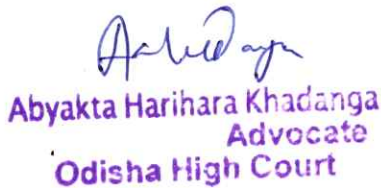 Abyakta Harihara Khadanga
Advocate
Odisha High Court